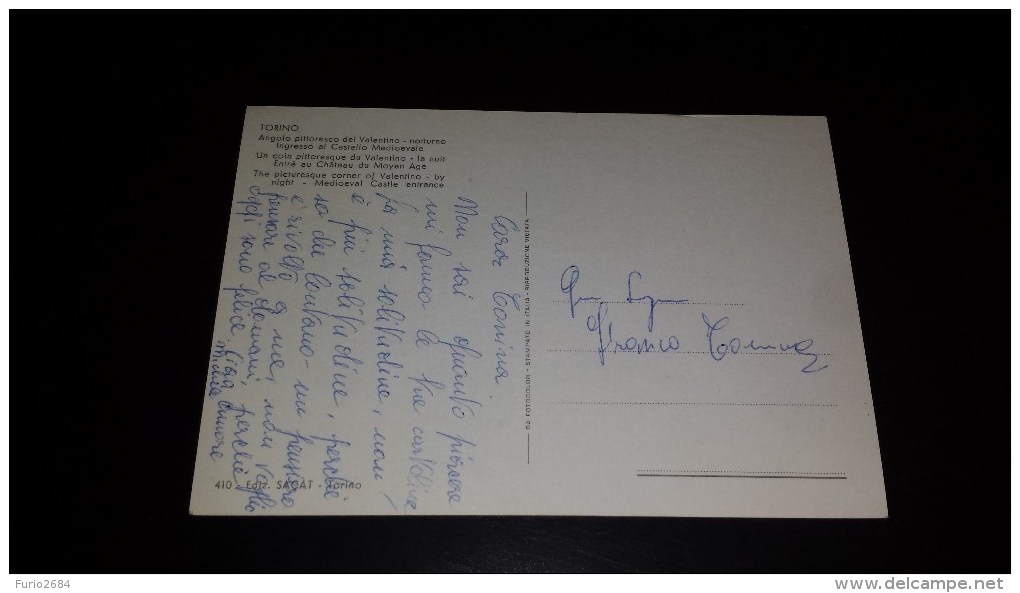 TORINO
Angolo pittoresco del Valentino - notturno
Ingresso al Castello Medioevale
Un coin pittoresque du Valentino - la nuit
Entré au Château du Moyen Age
The picturesque corner of Valentino - by
night - Medioeval Castle entrance
Cara Tonina.
Non sai quanto piacere
mi fanno le tue cartoline
la mia solitudine, non
è più solitudine, perché
so da lontano un pensiero
è rivolto a me, non voglio
pensare al domani,
oggi sono felice perché
amore
410 - Ediz. SACAT - Torino
DA FOTOCOLOR - STAMPATO IN ITALIA - RIPRODUZIONE VIETATA
Franco
Furio2684
www.delcampe.net